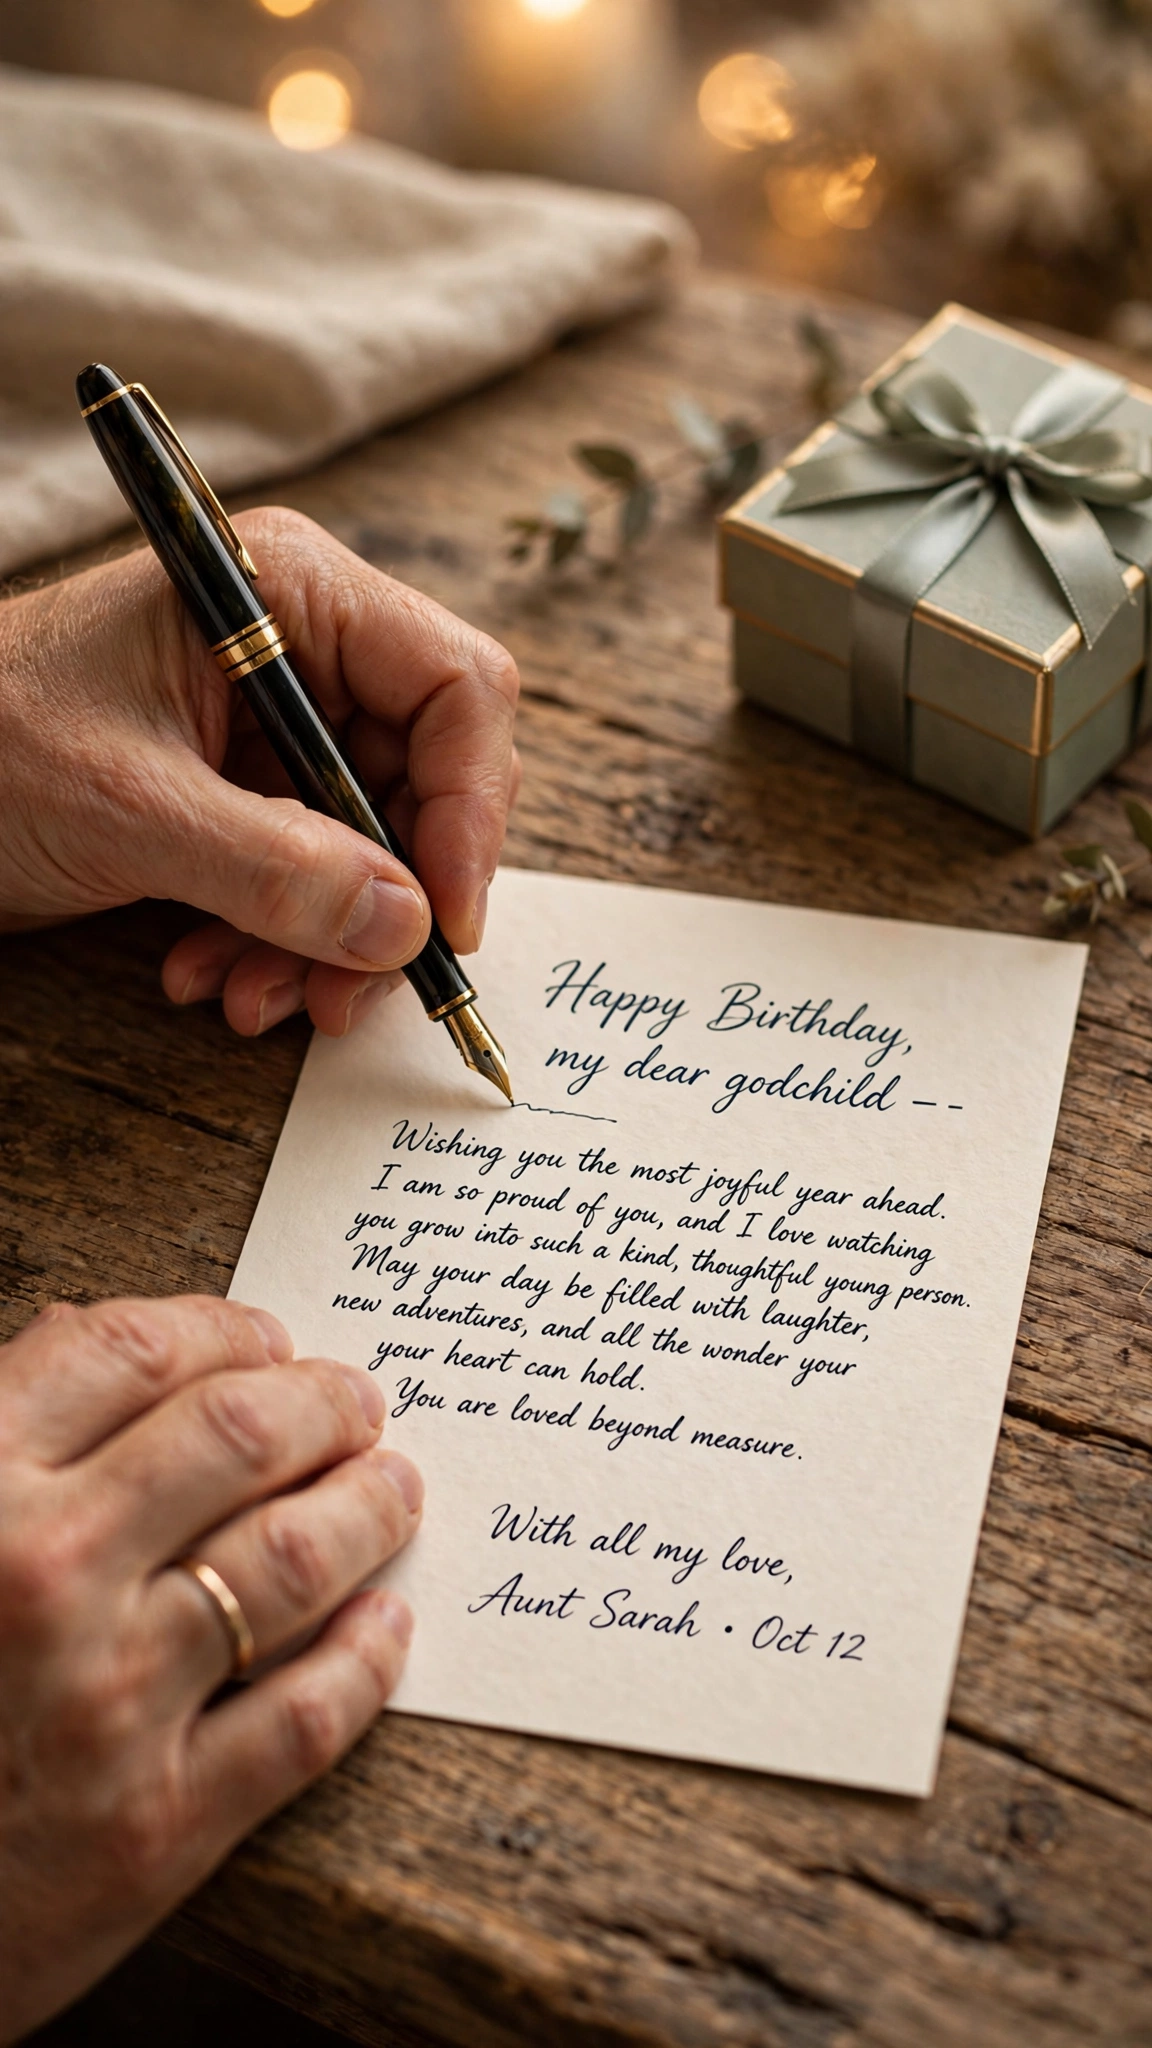 Happy Birthday,
my dear godchild - -
Wishing you the most joyful year ahead.
I am so proud of you, and I love watching
you grow into such a kind, thoughtful young person.
May your day be filled with laughter,
new adventures, and all the wonder your
your heart can hold.
You are loved beyond measure.
With all my love,
Aunt Sarah • Oct 12